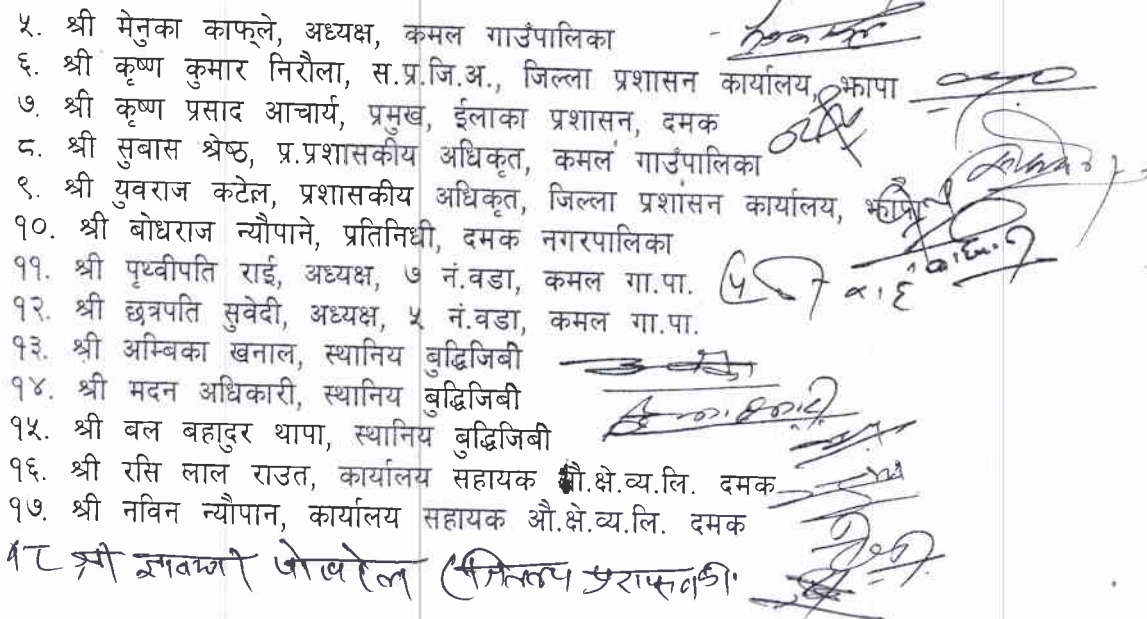 ५. श्री मेनुका काफ्ले, अध्यक्ष, कमल गाउँपालिका
६. श्री कृष्ण कुमार निरौला, स.प्र.जि.अ., जिल्ला प्रशासन कार्यालय, झापा
७. श्री कृष्ण प्रसाद आचार्य, प्रमुख, ईलाका प्रशासन, दमक
८. श्री सुबास श्रेष्ठ, प्र.प्रशासकीय अधिकृत, कमल गाउँपालिका
९. श्री युवराज कटेल, प्रशासकीय अधिकृत, जिल्ला प्रशासन कार्यालय, झापा
१०. श्री बोधराज न्यौपाने, प्रतिनिधी, दमक नगरपालिका
११. श्री पृथ्वीपति राई, अध्यक्ष, ७ नं.वडा, कमल गा.पा.
१२. श्री छत्रपति सुवेदी, अध्यक्ष, ५ नं.वडा, कमल गा.पा.
१३. श्री अम्बिका खनाल, स्थानिय बुद्धिजिबी
१४. श्री मदन अधिकारी, स्थानिय बुद्धिजिबी
१५. श्री बल बहादुर थापा, स्थानिय बुद्धिजिबी
१६. श्री रसि लाल राउत, कार्यालय सहायक औ.क्षे.व्य.लि. दमक
१७. श्री नविन न्यौपान, कार्यालय सहायक औ.क्षे.व्य.लि. दमक
१८ श्री पोखरेल